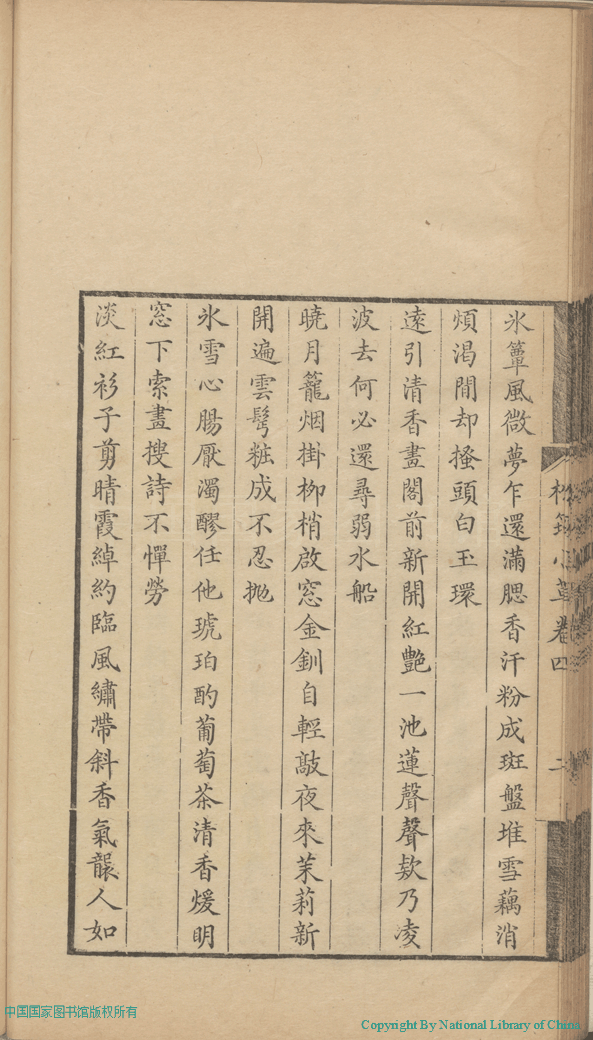 氷簟風微夢乍還滿腮香汗粉成斑盤堆雪藕消
煩渴閒却搔頭白玉環
遠引清香畫閣前新開紅艷一池蓮聲聲欵乃凌
波去何必還尋弱水船
曉月籠烟掛柳梢啟窓金釧自輕敲夜來茉莉新
開遍雲髩粧成不忍抛
氷雪心腸厭濁醪任他琥珀酌葡萄茶清香煖明
窓下索畫搜詩不憚勞
淡紅衫子剪晴霞綽約臨風繡帶斜香氣襲人如
小草卷四
二
中国国家图书馆版权所有
Copyright By National Library of China